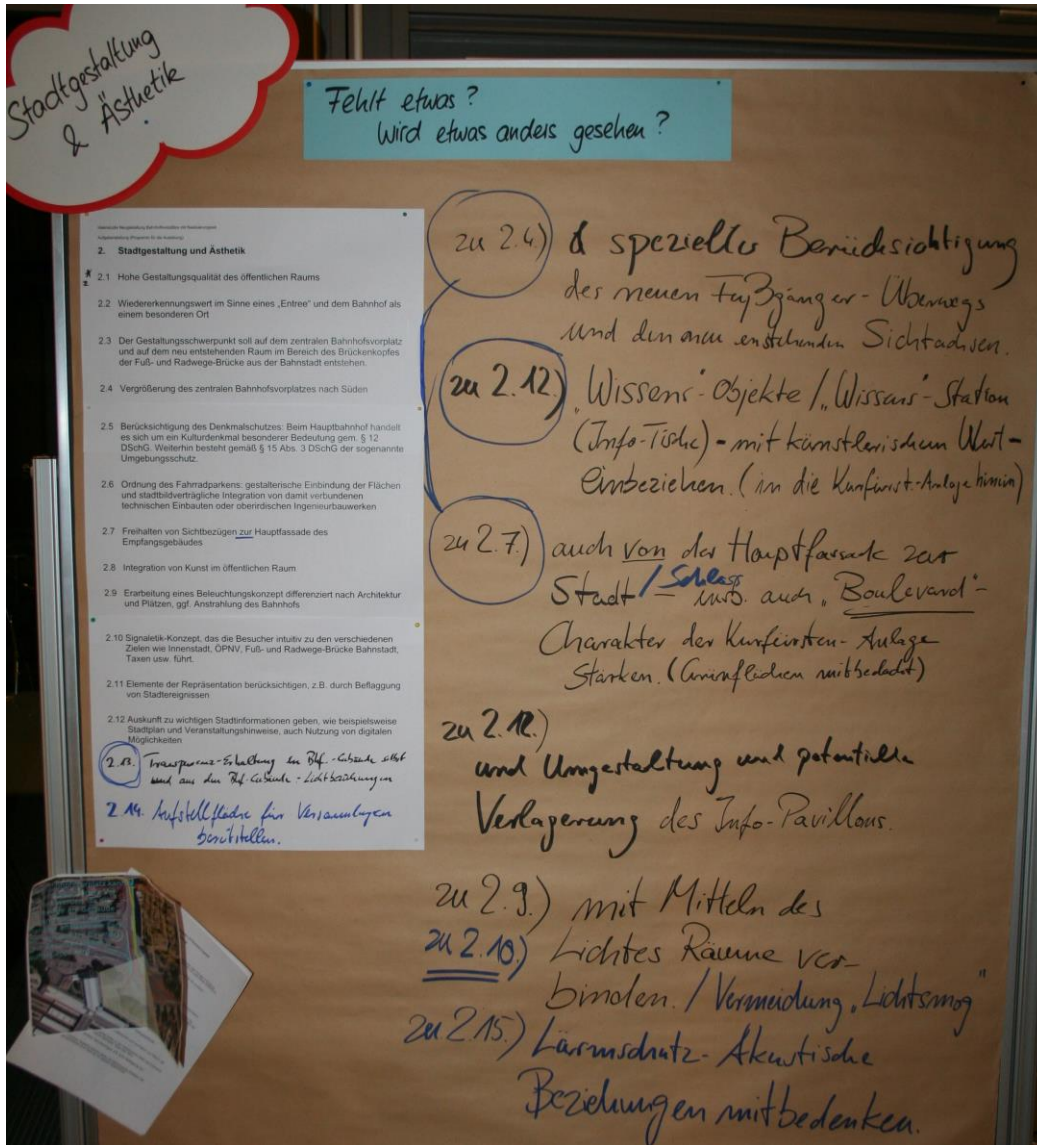 Stadtgestaltung
& Ästhetik
Fehlt etwas?
Wird etwas anders gesehen?
2. Stadtgestaltung und Ästhetik
2.1 Hohe Gestaltungsqualität des öffentlichen Raums
2.2 Wiedererkennungswert im Sinne eines „Entree“ und dem Bahnhof als
einem besonderen Ort
2.3 Der Gestaltungsschwerpunkt soll auf dem zentralen Bahnhofsvorplatz
und auf dem neu entstehenden Raum im Bereich des Brückenkopfes
der Fuß- und Radwege-Brücke aus der Bahnstadt entstehen.
2.4 Vergrößerung des zentralen Bahnhofsvorplatzes nach Süden
2.5 Berücksichtigung des Denkmalschutzes: Beim Hauptbahnhof handelt
es sich um ein Kulturdenkmal besonderer Bedeutung gem. § 12
DSchG. Weiterhin besteht gemäß § 15 Abs. 3 DSchG der sogenannte
Umgebungsschutz.
2.6 Ordnung des Fahrradparkens: gestalterische Einbindung der Flächen
und stadtbildverträgliche Integration von damit verbundenen
technischen Einbauten oder oberirdischen Ingenieurbauwerken
2.7 Freihalten von Sichtbezügen zur Hauptfassade des
Empfangsgebäudes
2.8 Integration von Kunst im öffentlichen Raum
2.9 Erarbeitung eines Beleuchtungskonzept differenziert nach Architektur
und Plätzen, ggf. Anstrahlung des Bahnhofs
2.10 Signaletik-Konzept, das die Besucher intuitiv zu den verschiedenen
Zielen wie Innenstadt, ÖPNV, Fuß- und Radwege-Brücke Bahnstadt,
Taxen usw. führt.
2.11 Elemente der Repräsentation berücksichtigen, z.B. durch Beflaggung
von Stadtereignissen
2.12 Auskunft zu wichtigen Stadtinformationen geben, wie beispielsweise
Stadtplan und Veranstaltungshinweise, auch Nutzung von digitalen
Möglichkeiten
2.13. Transparenz-Erhaltung im Bhf.-Gebäude selbst
und aus dem Bhf.-Gebäude - Lichtbeziehungen
2.14. Aufstellfläche für Versammlungen
bereitstellen.
zu 2.4.) & spezieller Berücksichtigung
des neuen Fußgänger-Überwegs
und den neu enstehenden Sichtachsen.
zu 2.12.) „Wissens“-Objekte / „Wissens“-Station
(Info-Tische) - mit künstlerischem Wert -
einbeziehen. (in die Kurfürst.-Anlage hinein)
zu 2.7.) auch von der Hauptfassade zur
Stadt / Schloss insb. auch „Boulevard“-
Charakter der Kurfürsten-Anlage
Stärken. (Grünflächen mitbedacht)
zu 2.12.)
und Umgestaltung und potentielle
Verlagerung des Info-Pavillons.
zu 2.9.) mit Mitteln des
zu 2.10.) Lichtes Räume ver-
binden. / Vermeidung „Lichtsmog“
zu 2.15.) Lärmschutz - Akustische
Beziehungen mitbedenken.